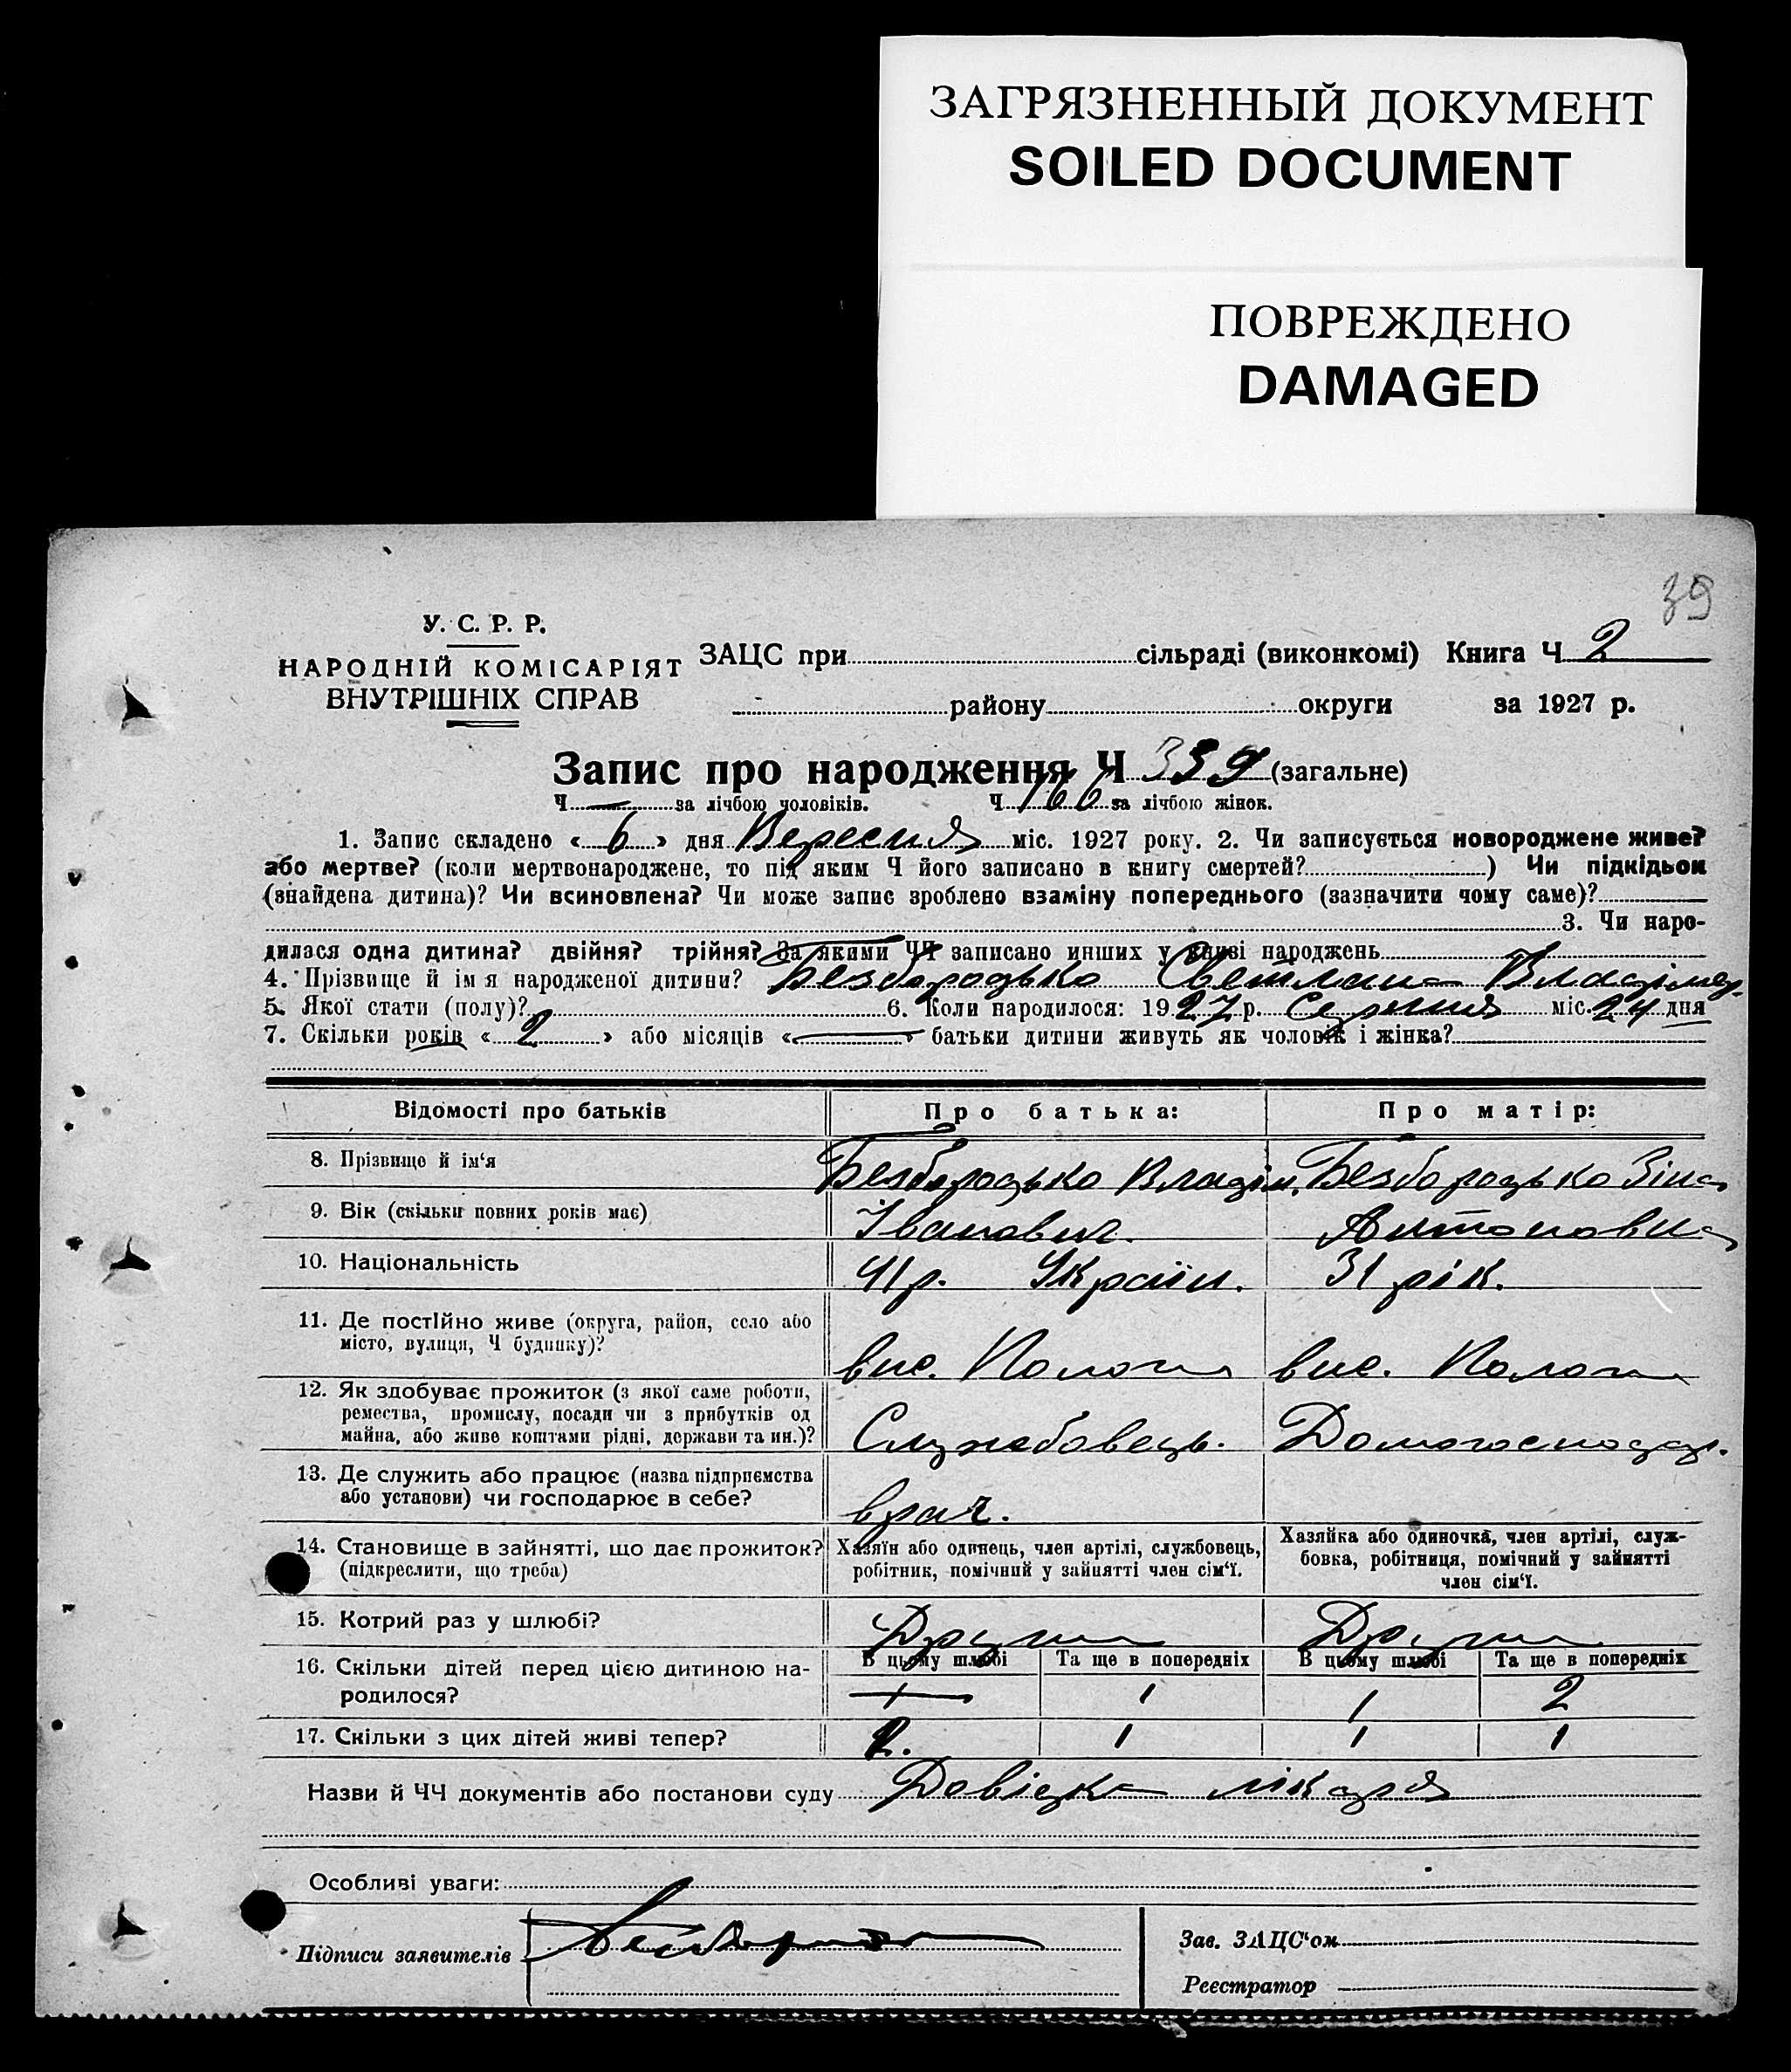 ЗАГРЯЗНЕННЫЙ ДОКУМЕНТ
SOILED DOCUMENT
ПОВРЕЖДЕНО
DAMAGED
39
У. С. Р. Р.
НАРОДНІЙ КОМІСАРІЯТ
ВНУТРІШНІХ СПРАВ
ЗАЦС при сільраді (виконкомі) Книга Ч 2
району округи за 1927 р.
Запис про народження Ч 339 (загальне)
Ч — за лічбою чоловіків. Ч 166 за лічбою жінок.
1. Запис складено « 6 » дня Вересня міс. 1927 року. 2. Чи записується новороджене живе?
або мертве? (коли мертвонароджене, то під яким Ч його записано в книгу смертей? ) Чи підкідьок
(знайдена дитина)? Чи всиновлена? Чи може запис зроблено взаміну попереднього (зазначити чому саме)?
3. Чи наро-
дилася одна дитина? двійня? трійня? За якими ЧЧ записано инших у книзі народжень
4. Прізвище й ім я народженої дитини? Безбородько Светлана Владімир.
5. Якої стати (полу)? 6. Коли народилося: 1927 р. Серпня міс. 24 дня
7. Скільки років « 2 » або місяців « — » батьки дитини живуть як чоловік і жінка?
Відомості про батьків Про батька: Про матір:
8. Прізвище й ім'я Безбородько Владім. Безбородько Зіна
9. Вік (скільки повних років має) Іванович. Антоновна
10. Національність 41 р. Україн. 31 рік.
11. Де постійно живе (округа, район, село або
місто, вулиця, Ч будинку)? вис. Пологи вис. Пологи
12. Як здобуває прожиток (з якої саме роботи,
ремества, промислу, посади чи з прибутків од
майна, або живе коштами рідні, держави та ин.)? Службовець. Домогосподар.
13. Де служить або працює (назва підприємства
або установи) чи господарює в себе? врач.
14. Становище в зайнятті, що дає прожиток?
(підкреслити, що треба)
Хазяїн або одинець, член артілі, службовець,
робітник, помічний у зайнятті член сім'ї.
Хазяйка або одиночка, член артілі, служ-
бовка, робітниця, помічний у зайнятті
член сім'ї.
15. Котрий раз у шлюбі? Другий Другий
16. Скільки дітей перед цією дитиною на-
родилося?
В цьому шлюбі Та ще в попередніх В цьому шлюбі Та ще в попередніх
1 1 1 2
17. Скільки з цих дітей живі тепер? 1 1 1
Назви й ЧЧ документів або постанови суду Довідка лікаря
Особливі уваги:
Підписи заявителів
Зав. ЗАЦС'ом
Реєстратор